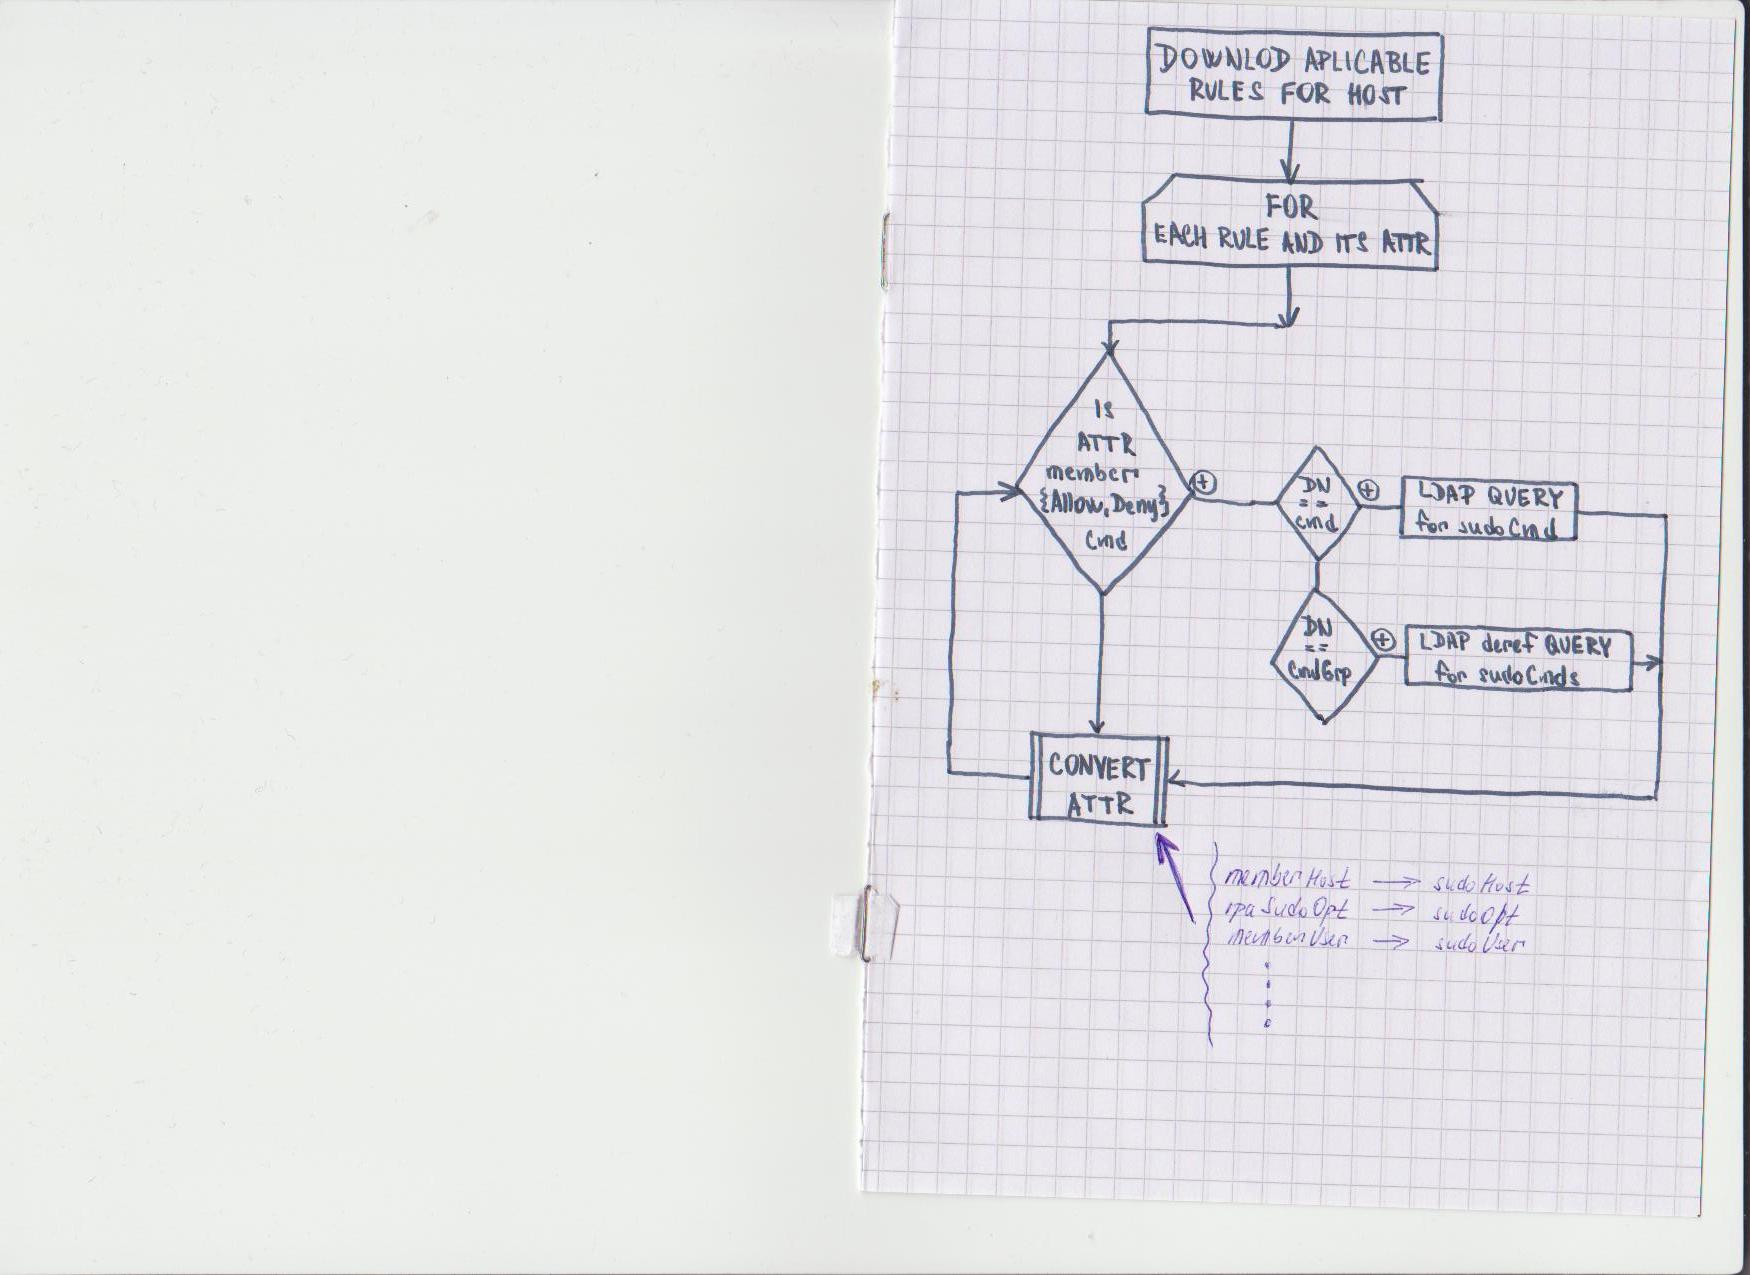 DOWNLOD APLICABLE
RULES FOR HOST
FOR
EACH RULE AND ITS ATTR
IS
ATTR
member
{Allow,Deny}
Cmd
+
DN
==
cmd
+
LDAP QUERY
for sudoCmd
DN
==
CmdGrp
+
LDAP deref QUERY
for sudoCmds
CONVERT
ATTR
memberHost → sudoHost
ipaSudoOpt → sudoOpt
memberUser → sudoUser